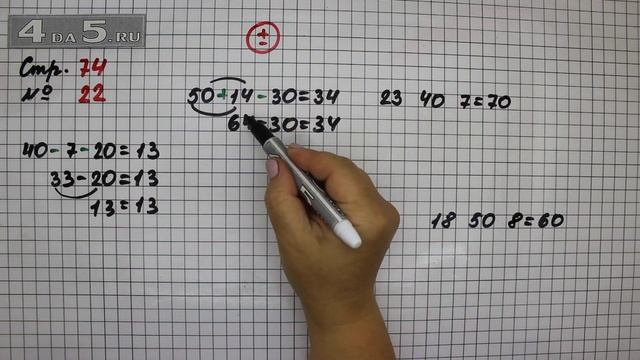 4 DA 5.RU
±
Стр. 74
№ 22
50+14-30=34
64-30=34
40-7-20=13
33-20=13
13=13
23 40 7=70
18 50 8=60